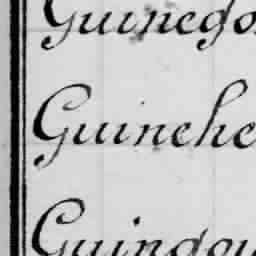 Guinego
Guinehe
Guingou